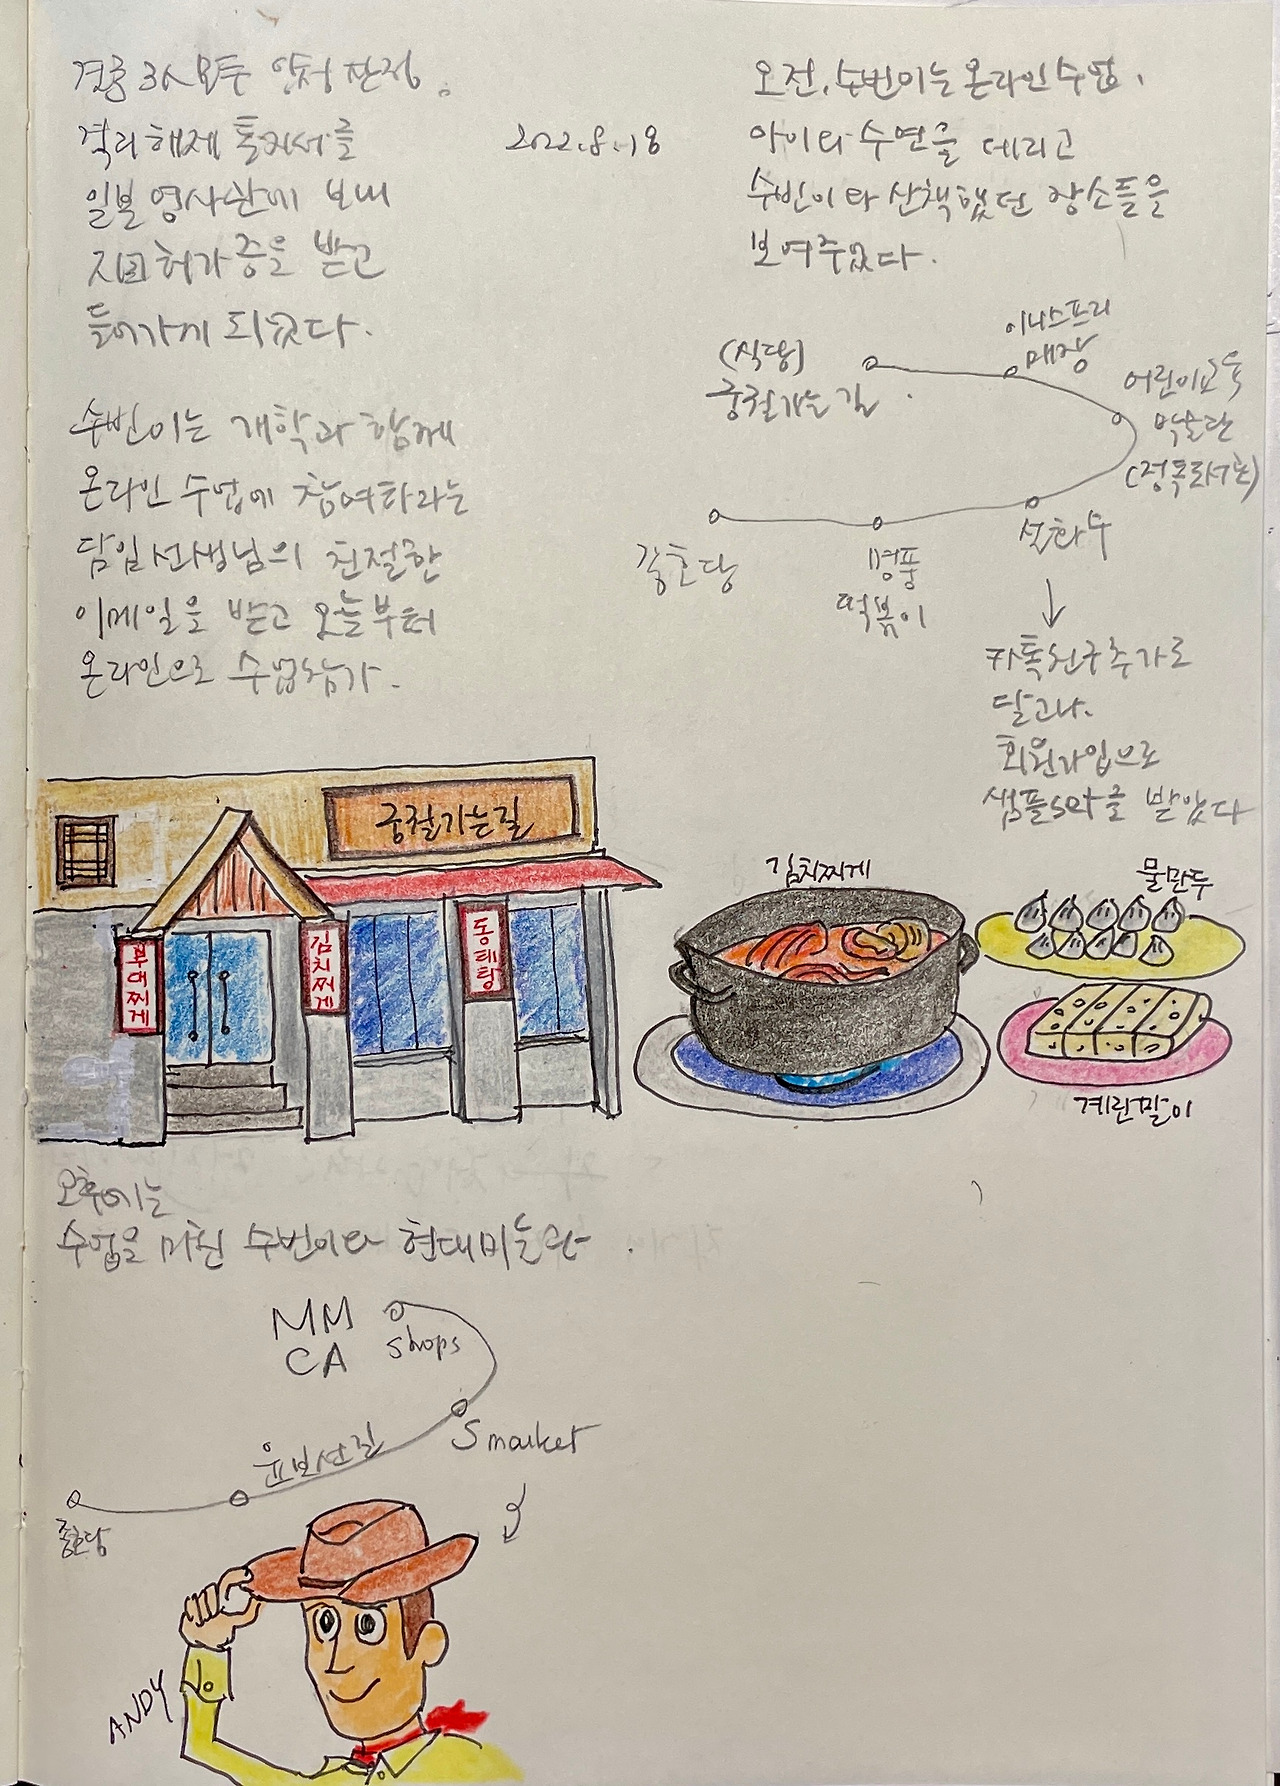 3人 모두 양성 판정.
격리해제 통지서를
일본 영사관에 보내
허가증을 받고
들어가게 되었다.
2022.8.18
수빈이는 개학과 함께
온라인 수업에 참여하라는
담임선생님의 친절한
이메일을 받고 오늘부터
온라인으로 수업참가.
오전, 수빈이는 온라인수업.
아이와 수연을 데리고
수빈이와 산책했던 장소들을
보여주었다.
(식당)
중철가는길.
이니스프리
매장
어린이교육
박물관
(정독도서관)
설화수
명품
떡볶이
카톡친구추가로
달고나.
회원가입으로
샘플set를 받았다
중철가는길
부대찌개
김치찌개
동태탕
김치찌게
물만두
계란말이
오후에는
수업을 마친 수빈이와 현대미술관.
MM
CA
shops
S market
윤보선길
ANDY